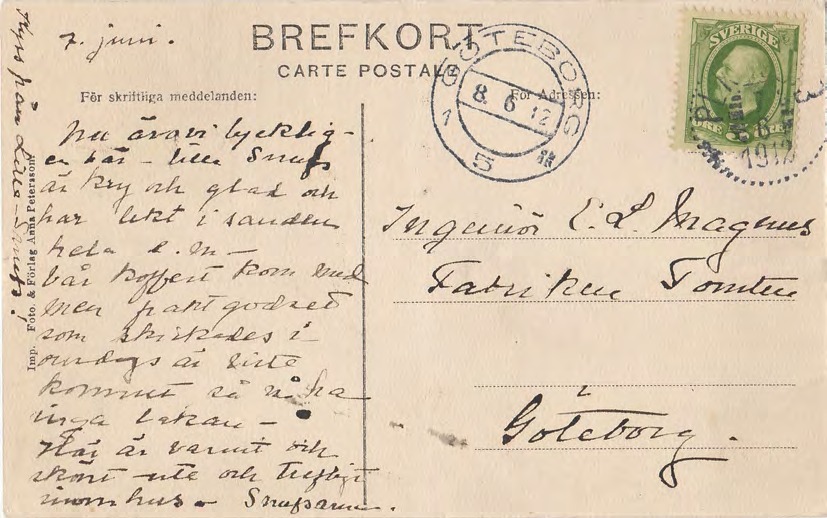 7. juni.
BREFKORT
CARTE POSTALE
För skriftliga meddelanden:
För Adressen:
Nu äro vi lycklig-
en här - lilla Snufs
är kry och glad och
har lekt i sanden
hela e.m -
Vår koffert kom med
men fraktgodset
som skickades i
onsdags är inte
kommet så vi ha
inga lakan -
Här är varmt och
skönt ute och trefligt
inomhus - Snufsarna.
Kyss från Lilla-Snufs!
Imp. Foto. & Förlag Anna Petersson
GÖTEBORG
8. 6. 12
1
5
SVERIGE
ÖRE 5 5 ÖRE
1912
Ingeniör E. L. Magnus
Fabriken Tomten
i
Göteborg.